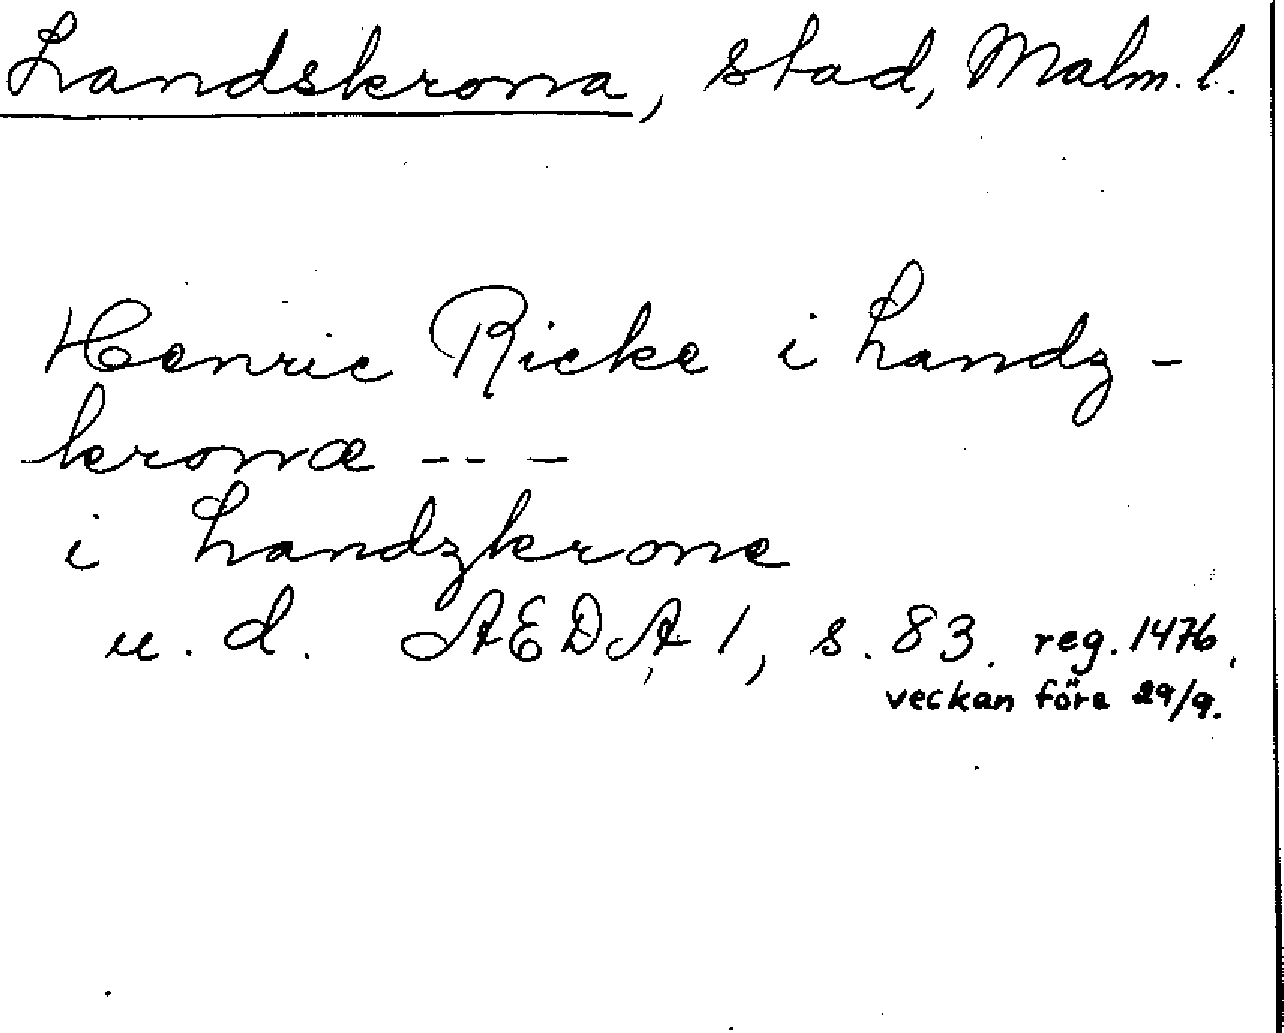 Landskrona, stad, Malm. l.
Henric Ricke i Landz-
kronæ - - -
i Landzkrone
u. d. AEDA 1, s. 83. reg. 1476,
veckan före 29/9.